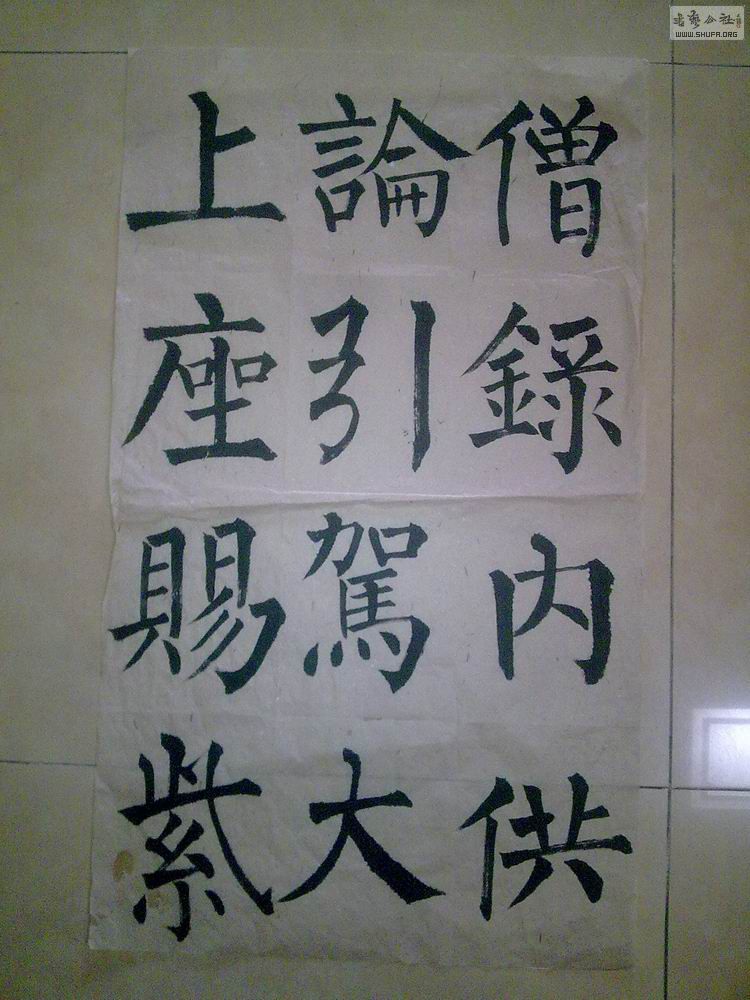 僧錄内供
論引駕大
上座賜紫
书艺公社
WWW.SHUFA.ORG